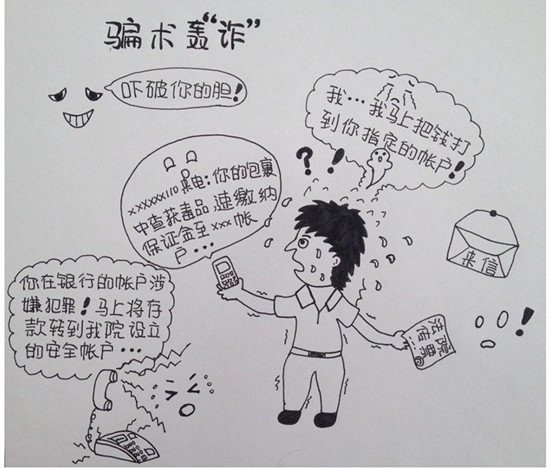 骗术轰“诈”
吓破你的胆!
我…我马上把钱打
到你指定的帐户!
?!
xxxxxx110来电:你的包裹
中查获毒品 速缴纳
保证金至xxx帐
户…
来信
!
法院
传票
你在银行的帐户涉
嫌犯罪!马上将存
款转到我院设立
的安全帐户…